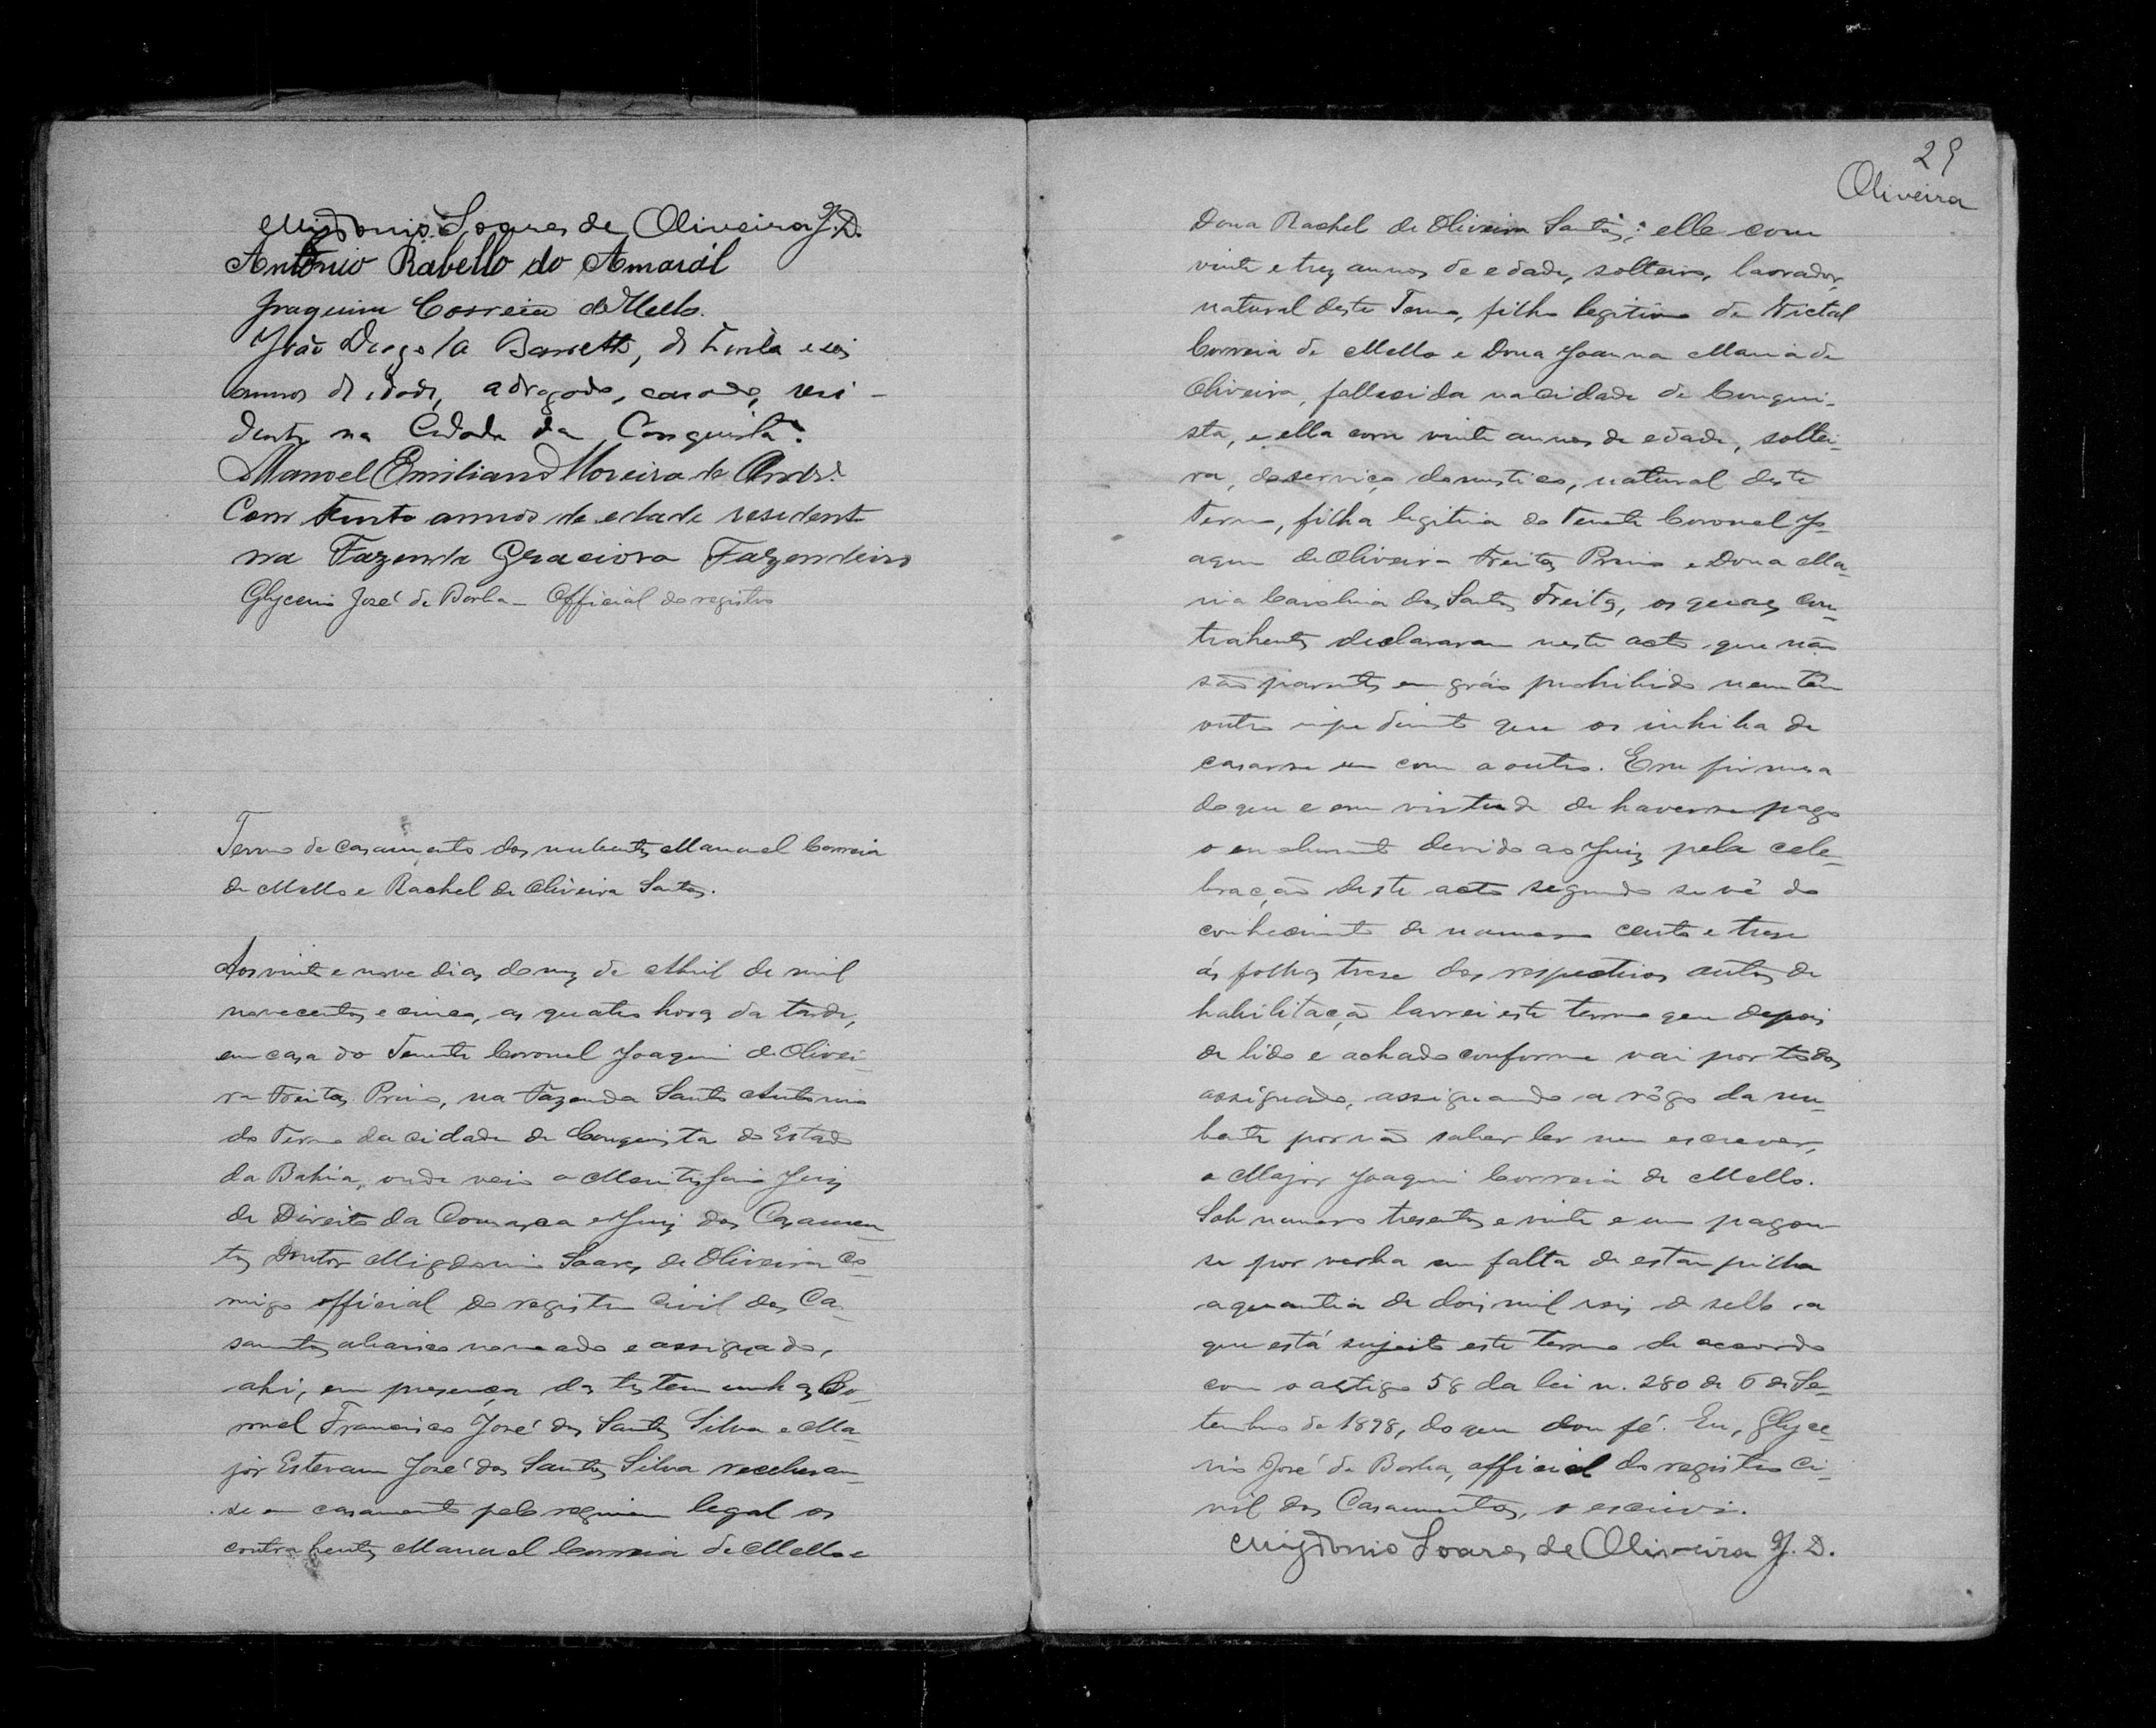 Migdonio Soares de Oliveira J. D.
Antônio Rabello do Amarál
Joaquim Correia de Mello.
João Diogo Sá Barretto, de trinta e seis
annos de idade, advogado, casado, resi-
dente na Cidade da Conquista.
Manoel Emiliano Moreira de Andr.e
Com trinta annos de edade residente
na Fazenda Graciosa Fazendeiro
Glycerio José de Borba - Official do registro
Termo de casamento dos nubentes Manuel Correia
de Mello e Rachel de Oliveira Santos.
Aos vinte e nove dias do mez de Abril de mil
novecentos e cinco, as quatro horas da tarde,
em casa do Tenente Coronel Joaquim de Olivei-
ra Freitas Primo, na Fazenda Santo Antonio
do Termo da cidade de Conquista do Estado
da Bahia, onde veio o Meritissimo Juiz
de Direito da Comarca e Juiz dos Casamen-
tos Doutor Migdonio Soares de Oliveira co-
migo official do registro Civil dos Ca-
samentos abaixo nomeado e assignado,
ahi, em presença das testemunhas Co-
ronel Francisco José dos Santos Silva e Ma-
jor Estevam José dos Santos Silva receberam-
se em casamento pelo regimem legal os
contrahentes Manuel Correia de Mello e
29
Oliveira
Dona Rachel de Oliveira Santos; elle com
vinte e trez annos de edade, solteiro, lavrador,
natural deste Termo, filho legitimo de Victal
Correia de Mello e Dona Joanna Maria de
Oliveira, fallecida na cidade de Conqui-
sta, e ella com vinte annos de edade, soltei-
ra, do serviço domestico, natural deste
Termo, filha legitima do Tenente Coronel Jo-
aquim de Oliveira Freitas Primo e Dona Ma-
ria Carolina dos Santos Freitas, os quaes con-
trahentes declararam neste acto que não
são parentes em gráo prohibido nem têm
outro impedimento que os inhiba de
casar-se um com o outro. Em firmesa
do que e em virtude de haver-se pago
o emolumento devido ao Juiz pela cele-
bração deste acto segundo se vê do
conhecimento de numero cento e trese
ás folhas trese dos respectivos autos de
habilitação lavrei este termo que depois
de lido e achado conforme vai por todos
assignado, assignando a rôgo da nu-
bente por não saber ler nem escrever,
o Major Joaquim Correia de Mello.
Sob numero tresentos e vinte e um pagou-
se por verba em falta de estampilha
a quantia de dois mil reis de sello a
que está sujeito este termo de accordo
com o artigo 58 da lei n. 280 de 6 de Se-
tembro de 1898, do que dou fé. Eu, Glyce-
rio José de Borba, official do registro Ci-
vil dos Casamentos, o escrivi.
Migdonio Soares de Oliveira J. D.